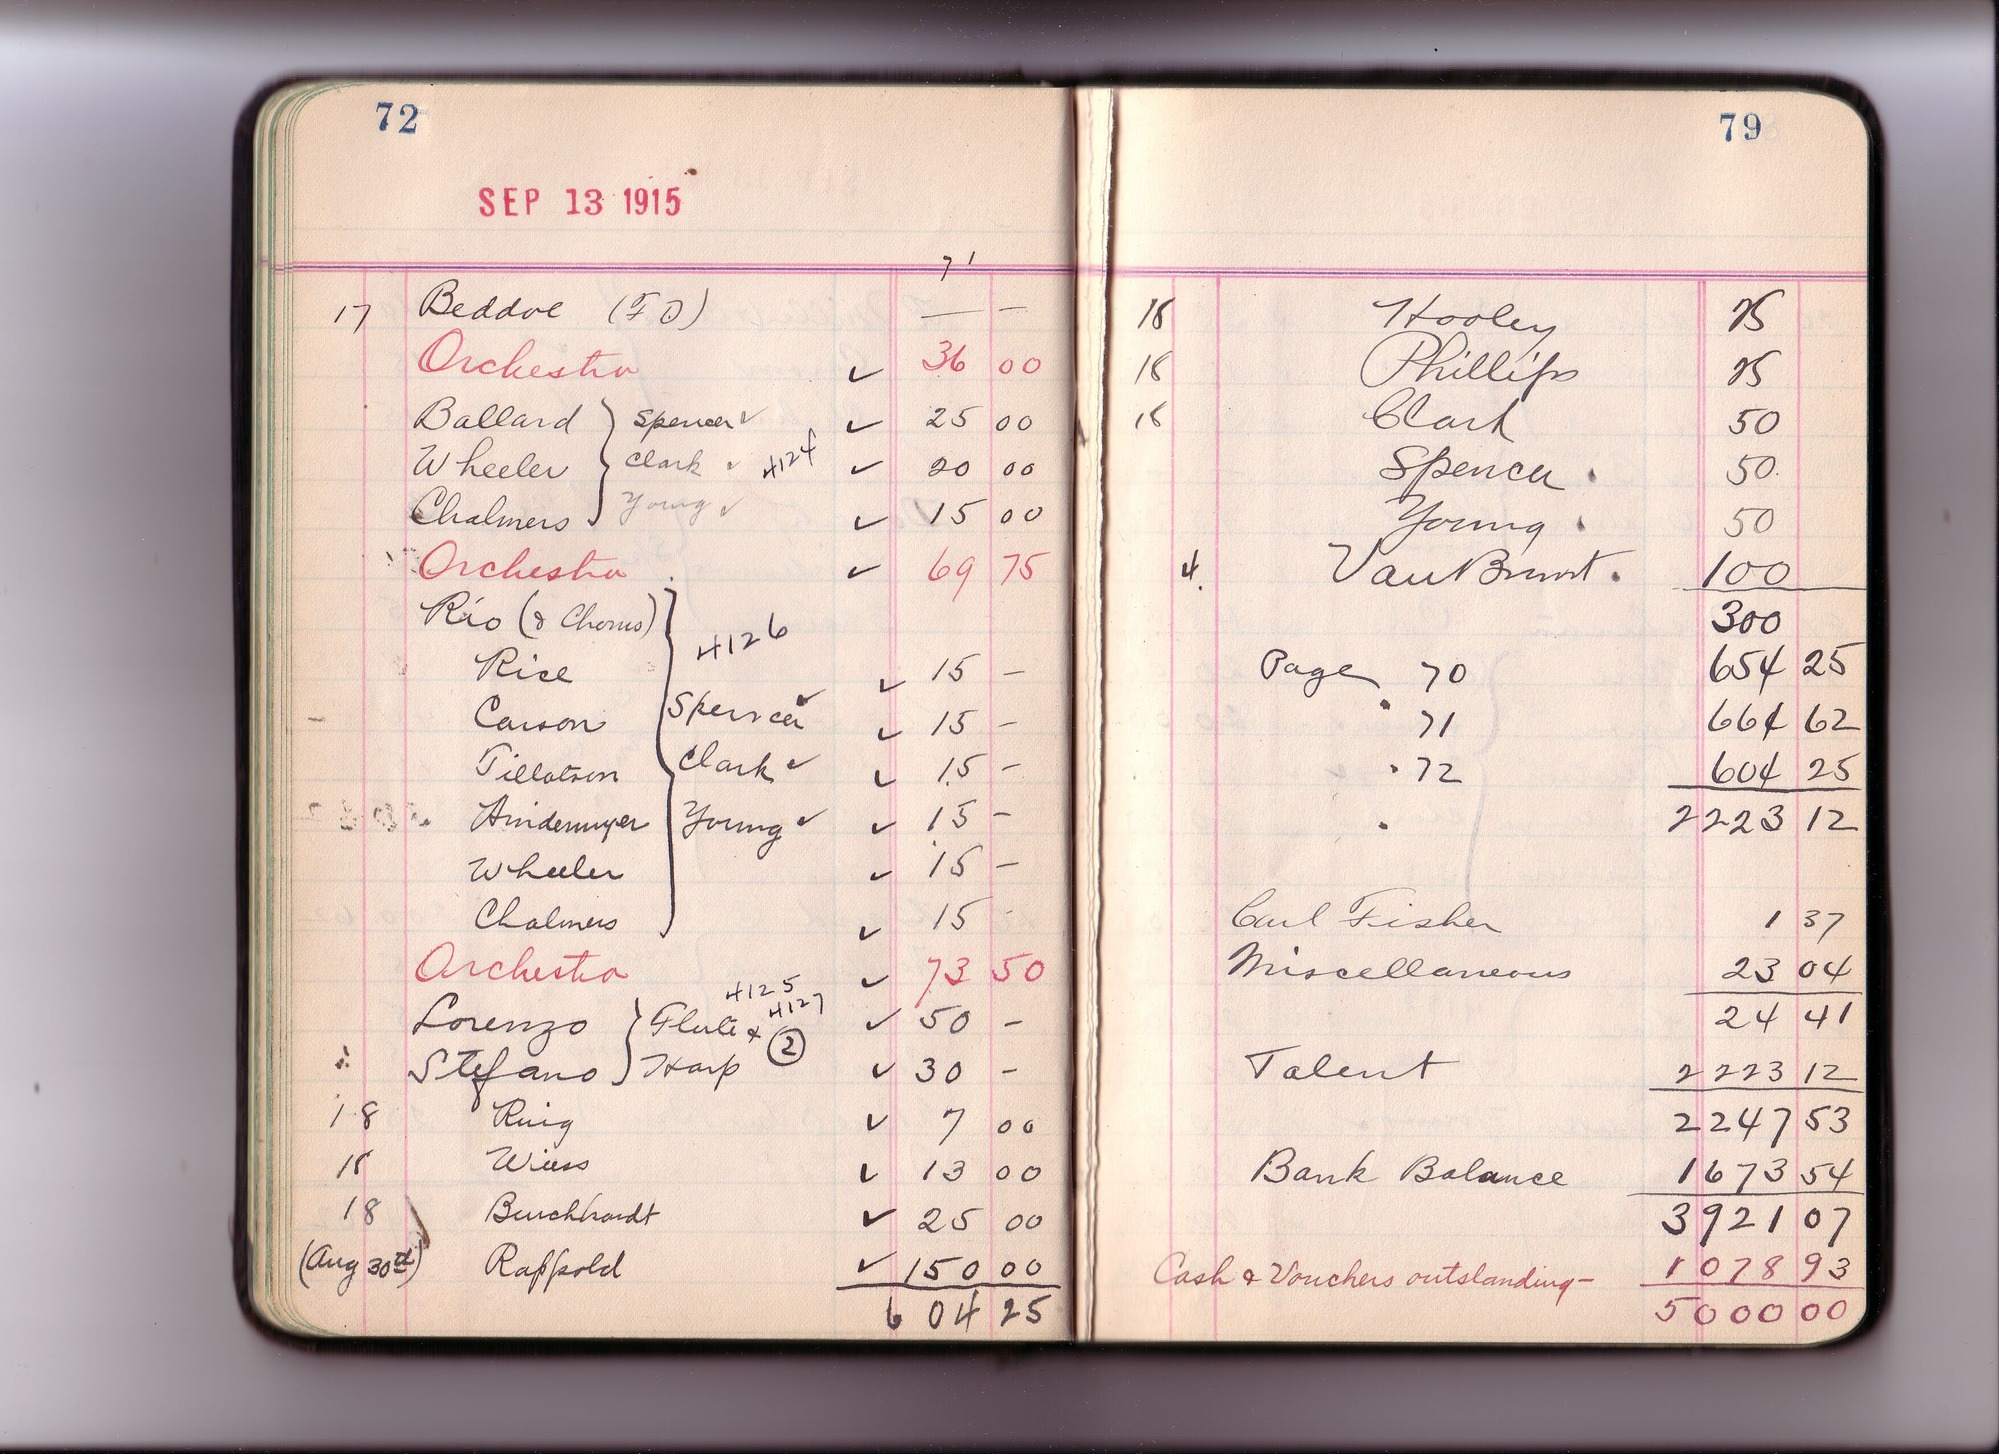 72
SEP 13 1915
71
17 Beddoe (FD) — —
Orchestra ✓ 36 00
Ballard Spencer ✓ ✓ 25 00
Wheeler Clark ✓ 4124 ✓ 20 00
Chalmers Young ✓ ✓ 15 00
Orchestra ✓ 69 75
Rio (& Chorus) 4126
Rice ✓ 15 —
Carson Spencer ✓ ✓ 15 —
Tillotson Clark ✓ ✓ 15 —
Hindermyer Young ✓ ✓ 15 —
Wheeler ✓ 15 —
Chalmers ✓ 15 -
Orchestra ✓ 73 50
4125
Lorenzo Flute & 4127 ✓ 50 —
Stefano Harp 2 ✓ 30 —
18 Ruig ✓ 7 00
18 Wiess ✓ 13 00
18 Burckhardt ✓ 25 00
(Aug 30th) Rappold ✓ 150 00
604 25
79
18 Hooley 25
18 Phillips 25
18 Clark 50
Spencer . 50.
Young . 50
4. Van Brunt . 100
300
Page 70 654 25
" 71 664 62
" 72 604 25
2223 12
Carl Fisher 1 37
Miscellaneous 23 04
24 41
Talent 2223 12
2247 53
Bank Balance 1673 54
3921 07
Cash & Vouchers outstanding — 1078 93
5000 00